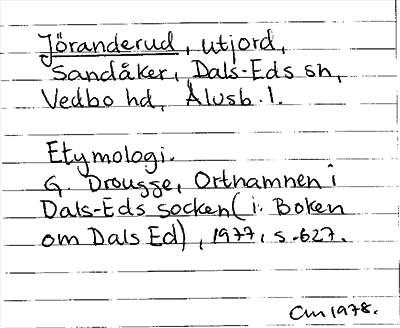 Jöranderud, utjord,
Sandåker, Dals-Eds sn,
Vedbo hd, Älvsb. l.
Etymologi.
G. Drougge, Ortnamnen i
Dals-Eds socken (i: Boken
om Dals Ed), 1977, s. 627.
CM 1978.